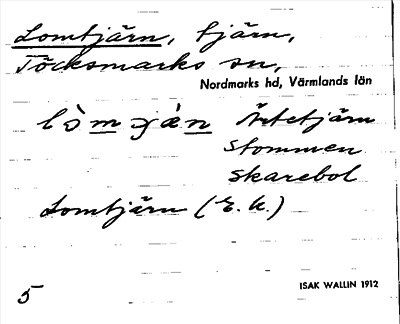 Lomtjärn, tjärn,
Töcksmarks sn,
Nordmarks hd, Värmlands län
Ärtetjärn
stommen
skarebol
Lomtjärn (E. K.)
5
ISAK WALLIN 1912